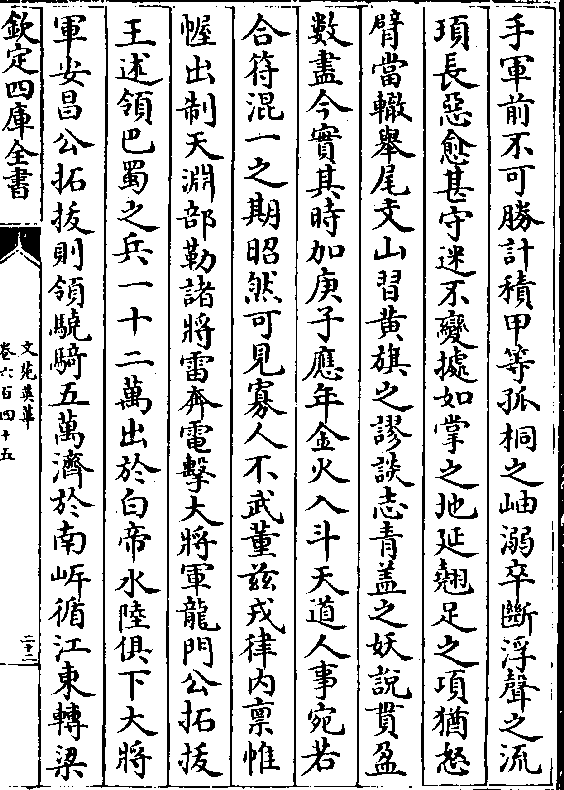 手軍前不可勝計積甲等孤桐之岫溺卒斷浮聲之流
項長惡愈甚守迷不變據如掌之地延翹足之項猶怒
臂當轍舉尾支山習黄旗之謬談志青盖之妖說貫盈
數盡今實其時加庚子應年金火入斗天道人事宛若
合符混一之期昭然可見寡人不武董兹戎律内禀帷
幄出制天淵部勒諸將雷奔電擊大將軍龍門公拓拔
王述領巴蜀之兵一十二萬出於白帝水陸俱下大將
軍安昌公拓拔則領驍騎五萬濟於南㟁循江東轉梁
欽定四庫全書
文苑英華
卷六百四十五
二十二